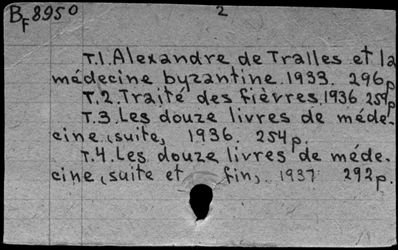 BF8950
2
T.1. Alexandre de Tralles et la
médecine byzantine. 1933. 296p
T.2. Traité des fièvres. 1936 259p
T.3. Les douze livres de méde-
cine (suite, 1936. 254p.
T.4. Les douze livres de méde-
cine (suite et fin, 1937 292p.